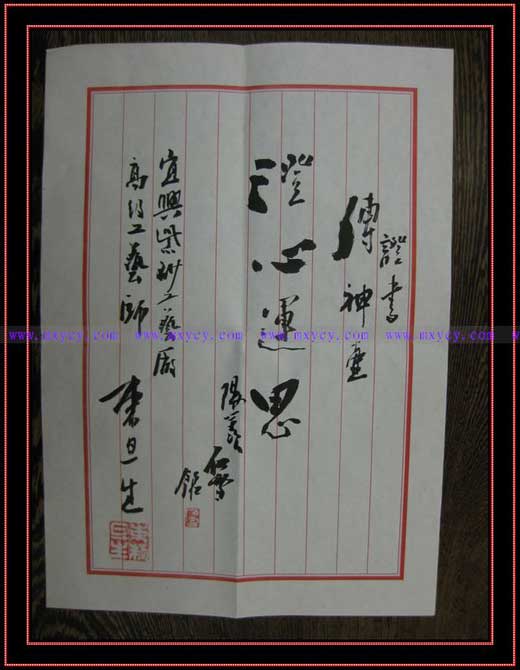 證書
傳神壺
澄心運思
陽羨
館
宜興紫砂工藝廠
高級工藝師
束旦生
www.mxycy.com www.mxycy.com www.mxycy.com www.mxycy.com